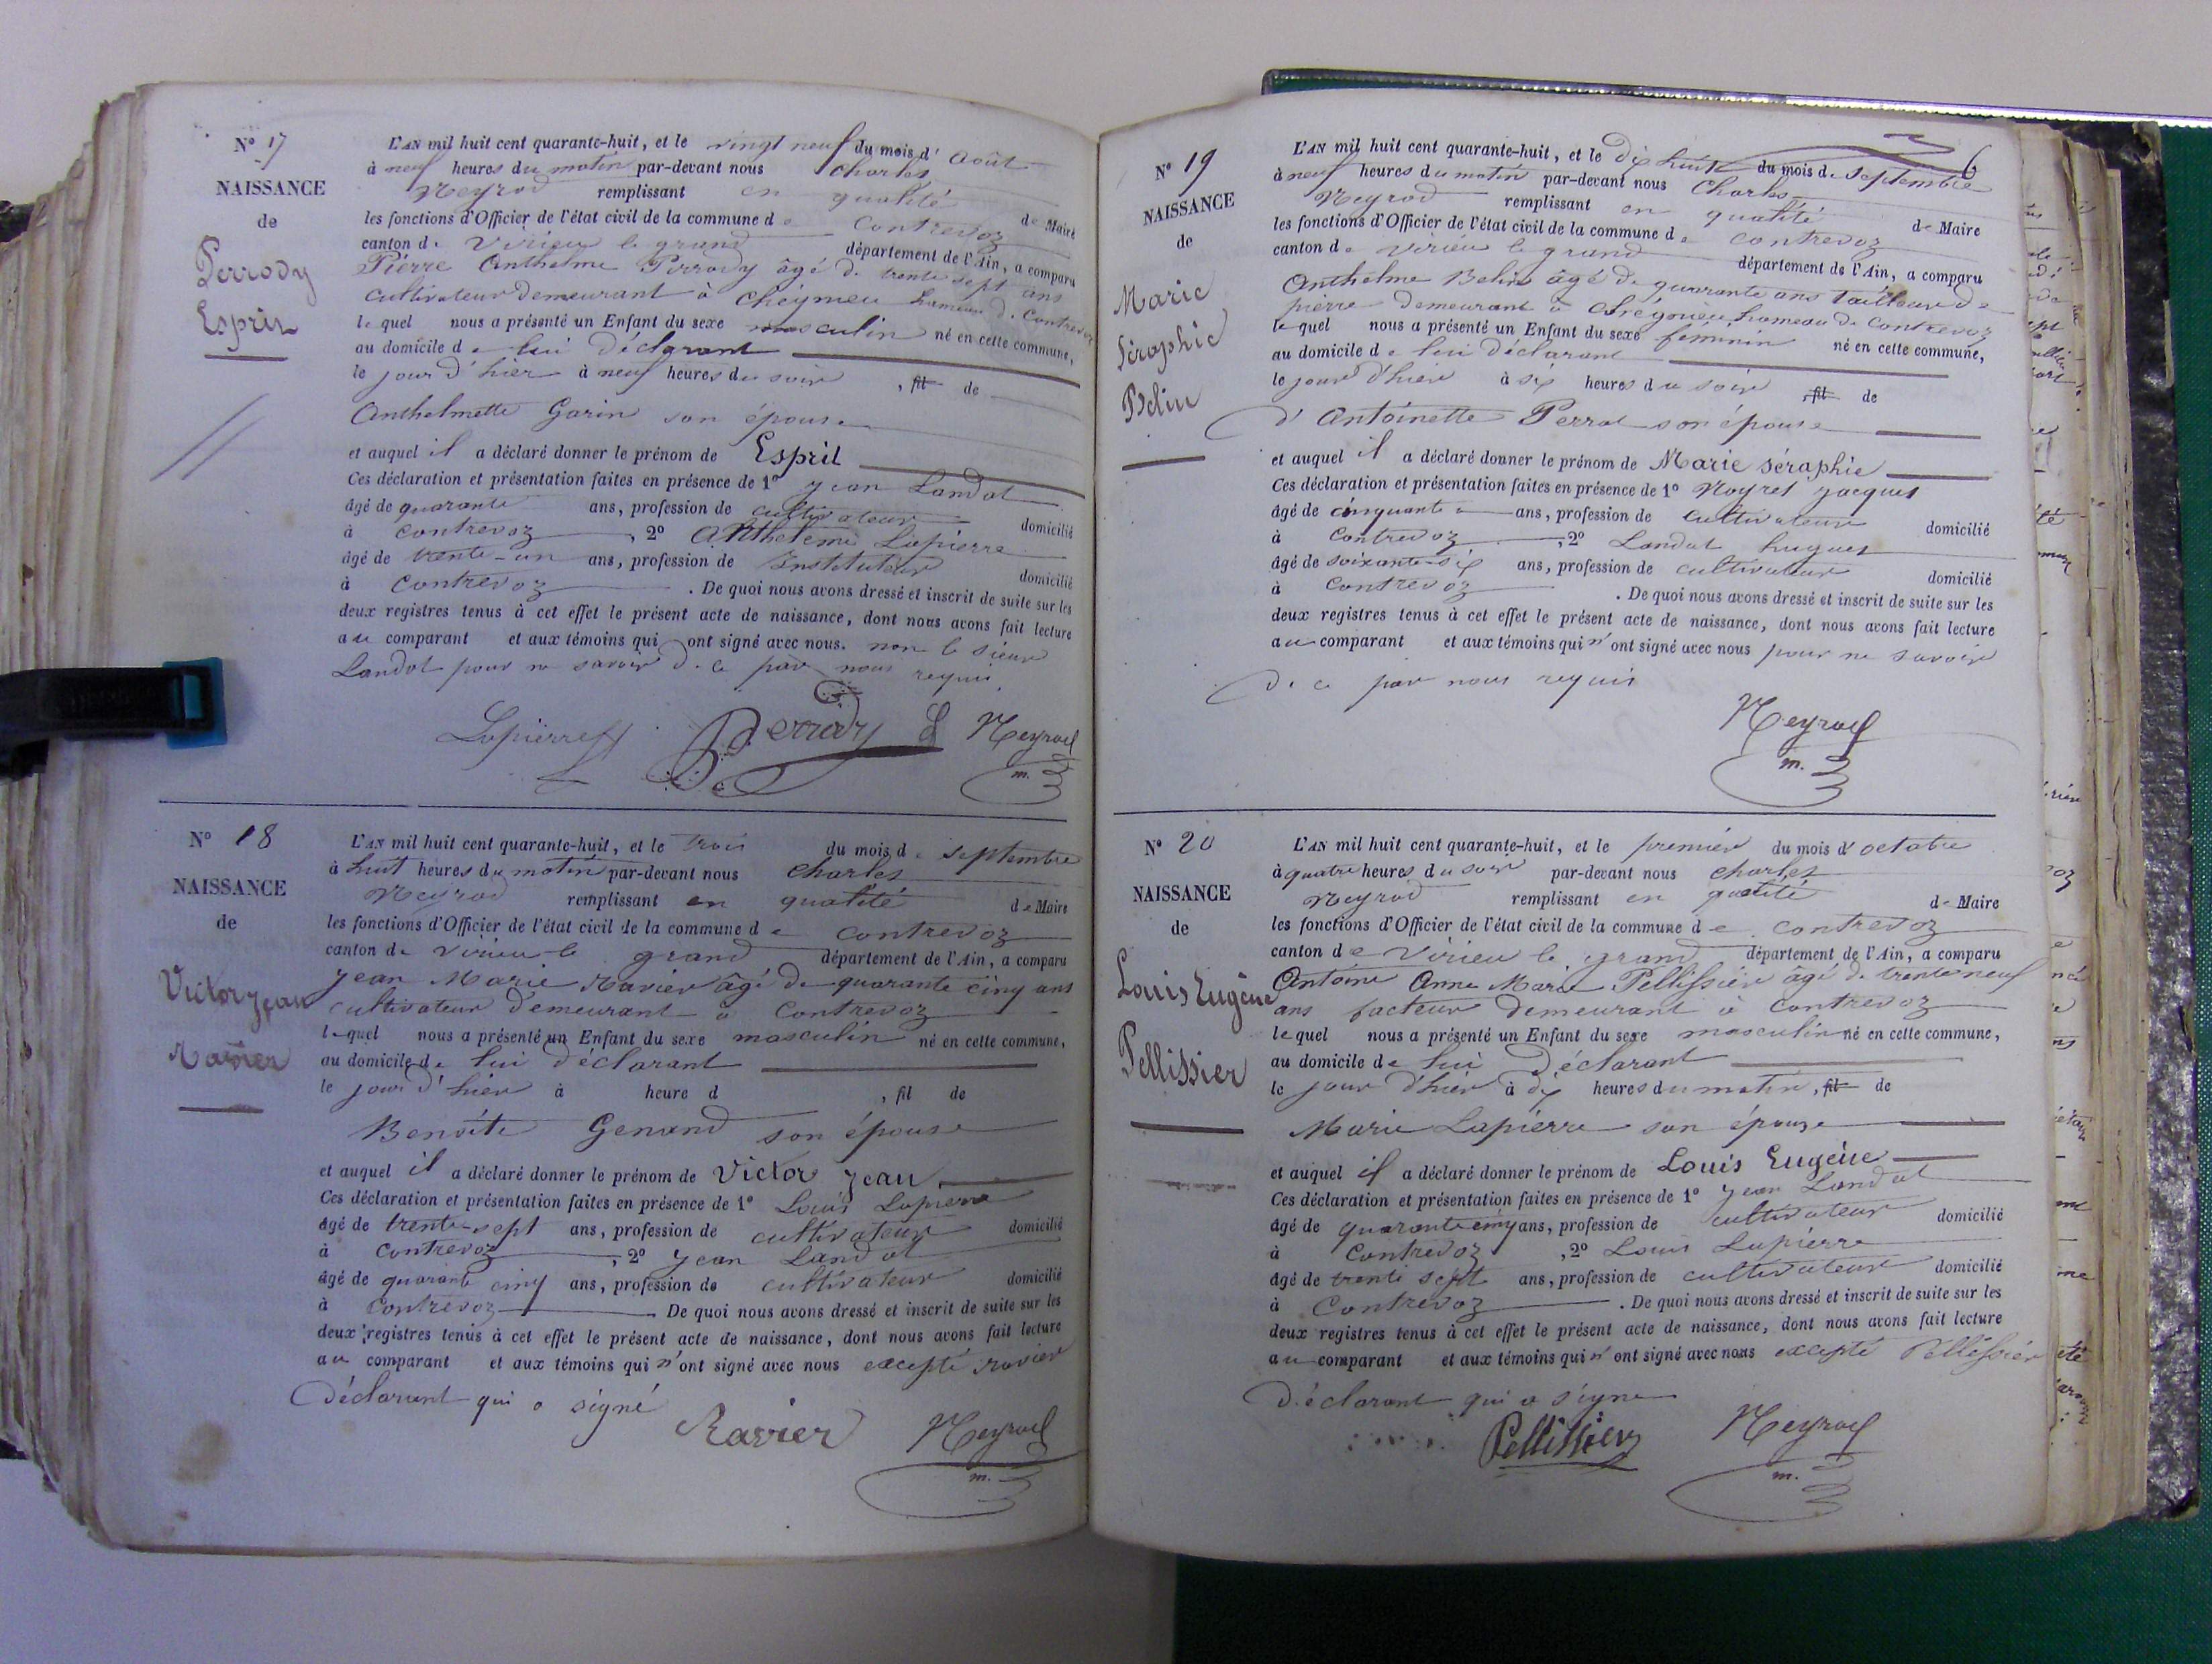 N° 17
NAISSANCE
de
Perrody
Esprit
L'AN mil huit cent quarante-huit, et le vingt neuf du mois d' Août
à neuf heures du matin par-devant nous Charles
Neyrod remplissant en qualité de Maire
les fonctions d'Officier de l'état civil de la commune de Contrevoz
canton de Virieu le grand département de l'Ain, a comparu
Pierre Anthelme Perrody âgé de trente sept ans
cultivateur demeurant à Cheignieu hameau de Contrevoz
lequel nous a présenté un Enfant du sexe masculin né en cette commune,
au domicile de lui Déclarant
le jour d'hier à neuf heures du soir, fil de
Anthelmette Garin son épouse
et auquel il a déclaré donner le prénom de Esprit
Ces déclaration et présentation faites en présence de 1° Jean Landot
âgé de quarante ans, profession de cultivateur domicilié
à Contrevoz, 2° Anthelme Lapierre
âgé de trente-un ans, profession de Instituteur domicilié
à Contrevoz. De quoi nous avons dressé et inscrit de suite sur les
deux registres tenus à cet effet le présent acte de naissance, dont nous avons fait lecture
au comparant et aux témoins qui ont signé avec nous. non le sieur
Landot pour ne savoir de ce par nous requis
Lapierre Perrody Neyrod
m.
N° 18
NAISSANCE
de
Victor Jean
Ravier
L'AN mil huit cent quarante-huit, et le trois du mois de septembre
à huit heures du matin par-devant nous Charles
Neyrod remplissant en qualité de Maire
les fonctions d'Officier de l'état civil de la commune de Contrevoz
canton de Virieu le grand département de l'Ain, a comparu
Jean Marie Ravier âgé de quarante cinq ans
cultivateur demeurant à Contrevoz
lequel nous a présenté un Enfant du sexe masculin né en cette commune,
au domicile de lui déclarant
le jour d'hier à heure d , fil de
Benoite Genand son épouse
et auquel il a déclaré donner le prénom de Victor Jean
Ces déclaration et présentation faites en présence de 1° Louis Lapierre
âgé de trente-sept ans, profession de cultivateur domicilié
à Contrevoz, 2° Jean Landot
âgé de quarante cinq ans, profession de cultivateur domicilié
à Contrevoz. De quoi nous avons dressé et inscrit de suite sur les
deux registres tenus à cet effet le présent acte de naissance, dont nous avons fait lecture
au comparant et aux témoins qui n'ont signé avec nous excepté Ravier
Déclarant qui a signé
Ravier Neyrod
m.
6
N° 19
NAISSANCE
de
Marie
Séraphie
Belin
L'AN mil huit cent quarante-huit, et le dix huit du mois de septembre
à neuf heures du matin par-devant nous Charles
Neyrod remplissant en qualité de Maire
les fonctions d'Officier de l'état civil de la commune de Contrevoz
canton de Virieu le grand département de l'Ain, a comparu
Anthelme Belin âgé de quarante ans tailleur de
pierre demeurant à Cheignieu hameau de Contrevoz
lequel nous a présenté un Enfant du sexe féminin né en cette commune,
au domicile de lui déclarant
le jour d'hier à six heures du soir, fil de
d'Antoinette Perrot son épouse
et auquel il a déclaré donner le prénom de Marie séraphie
Ces déclaration et présentation faites en présence de 1° Noyret Jacques
âgé de cinquante ans, profession de cultivateur domicilié
à Contrevoz, 2° Landot hugues
âgé de soixante six ans, profession de cultivateur domicilié
à Contrevoz. De quoi nous avons dressé et inscrit de suite sur les
deux registres tenus à cet effet le présent acte de naissance, dont nous avons fait lecture
au comparant et aux témoins qui n'ont signé avec nous pour ne savoir
de ce par nous requis
Neyrod
m.
N° 20
NAISSANCE
de
Louis Eugène
Pellissier
L'AN mil huit cent quarante-huit, et le premier du mois d'octobre
à quatre heures du soir par-devant nous Charles
Neyrod remplissant en qualité de Maire
les fonctions d'Officier de l'état civil de la commune de Contrevoz
canton de Virieu le grand département de l'Ain, a comparu
Antoine Anne Marie Pellissier âgé de trente neuf
ans facteur demeurant à Contrevoz
lequel nous a présenté un Enfant du sexe masculin né en cette commune,
au domicile de lui Déclarant
le jour d'hier à dix heures du matin, fil de
Marie Lapierre son épouse
et auquel il a déclaré donner le prénom de Louis Eugène
Ces déclaration et présentation faites en présence de 1° Jean Landot
âgé de quarante cinq ans, profession de cultivateur domicilié
à Contrevoz, 2° Louis Lapierre
âgé de trente sept ans, profession de cultivateur domicilié
à Contrevoz. De quoi nous avons dressé et inscrit de suite sur les
deux registres tenus à cet effet le présent acte de naissance, dont nous avons fait lecture
au comparant et aux témoins qui n'ont signé avec nous excepté Pellissier
Déclarant qui a signé
Pellissier Neyrod
m.